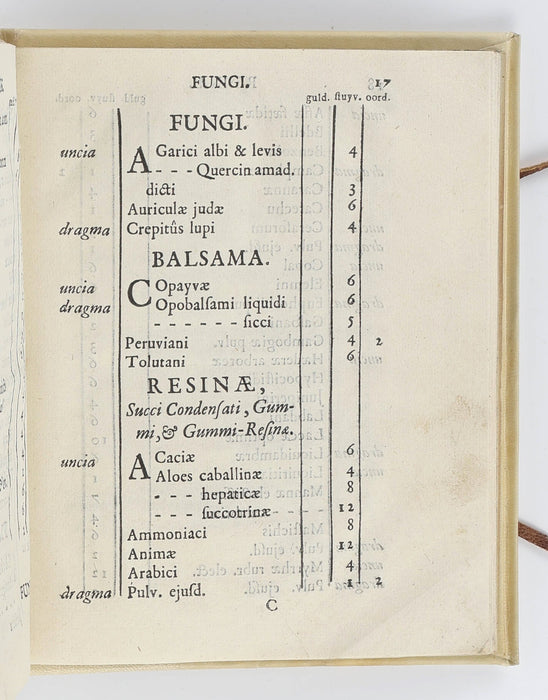 FUNGI. 17
guld. ſtuyv. oord.
FUNGI.
uncia AGarici albi & levis 4
- - - Quercin amad.
dicti 3
Auriculæ judæ 6
dragma Crepitûs lupi 4
BALSAMA.
uncia COpayvæ 6
dragma Opobalſami liquidi 6
- - - - - - ſicci 5
Peruviani 4 2
Tolutani 6
RESINÆ,
Succi Condenſati, Gum-
mi, & Gummi-Reſinæ.
uncia ACaciæ 6
Aloes caballinæ 4
- - - hepaticæ 8
- - - ſuccotrinæ 12
Ammoniaci 8
Animæ 12
Arabici 4
dragma Pulv. ejuſd. 1 2
C